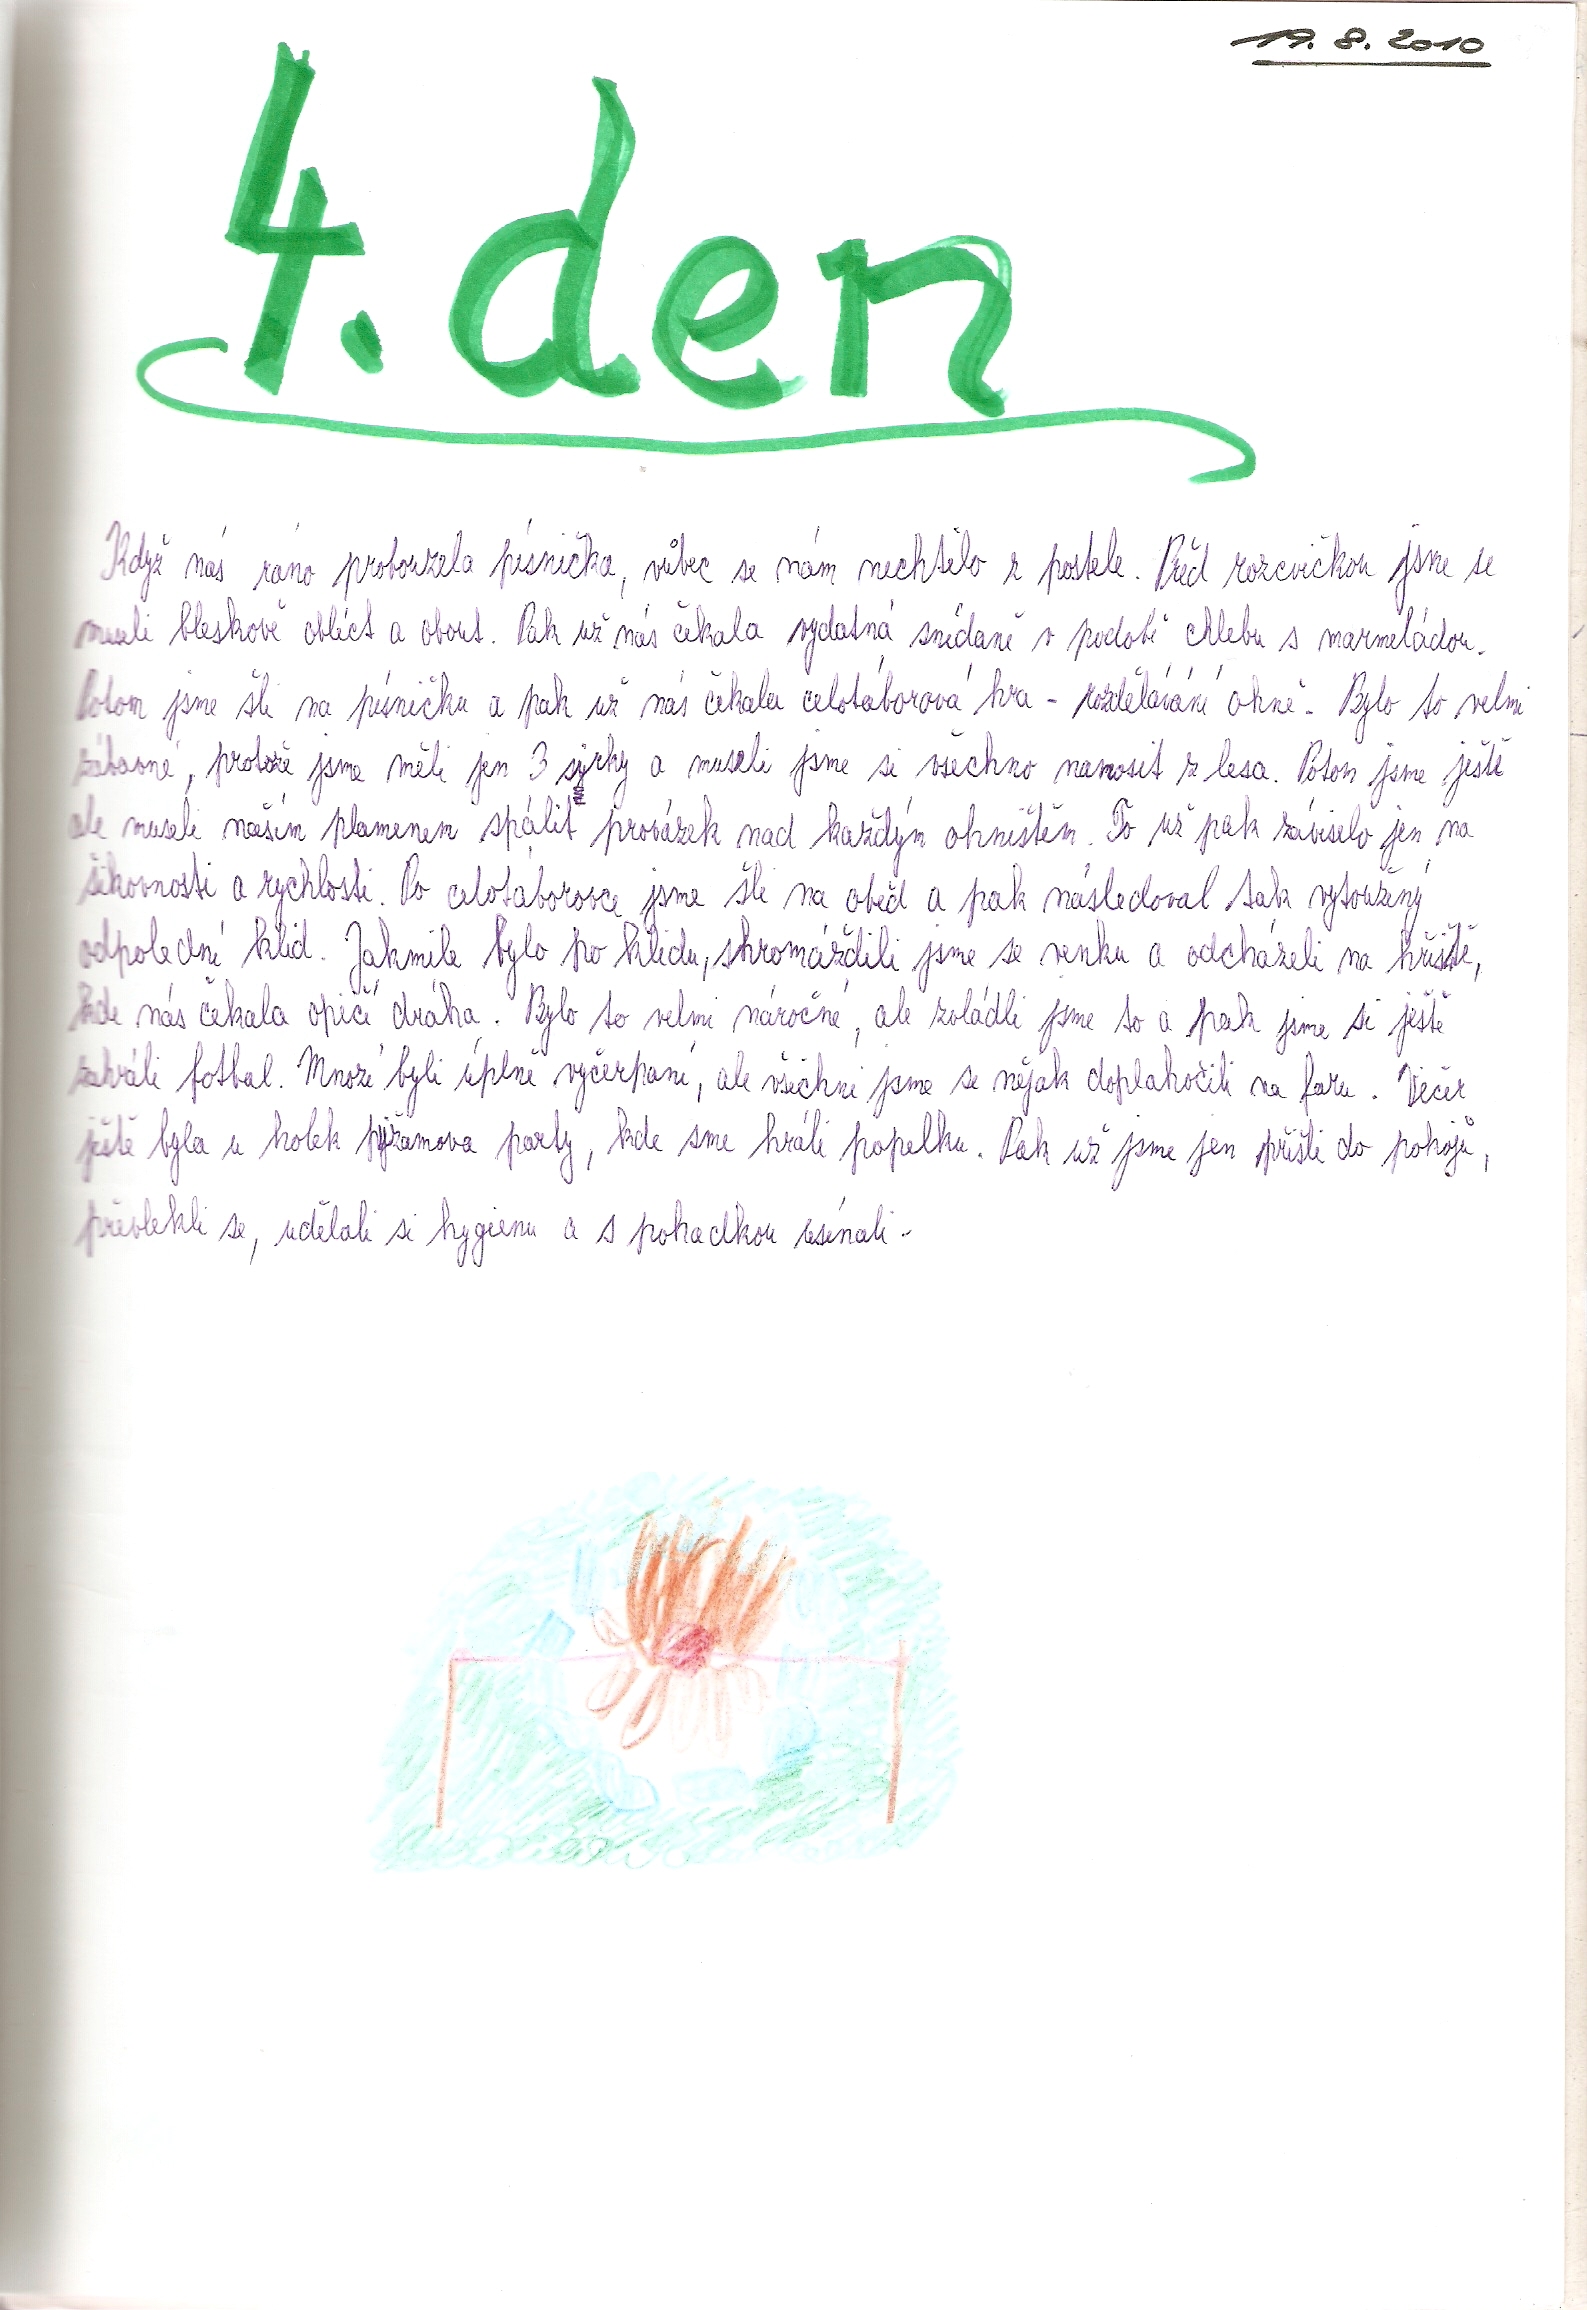 19. 8. 2010
4. den
Když nás ráno probouzela písnička, vůbec se nám nechtělo z postele. Před rozcvičkou jsme se
museli bleskově obléct a obout. Pak už nás čekala vydatná snídaně v podobě chlebu s marmeládou.
Potom jsme šli na písničku a pak už nás čekala celotáborová hra - rozdělávání ohně. Bylo to velmi
zábavné, protože jsme měli jen 3 syrky a museli jsme si všechno nanosit z lesa. Potom jsme ještě
ale museli naším plamenem spálit provázek nad každým ohništěm. To už pak záviselo jen na
šikovnosti a rychlosti. Po celotáborovce jsme šli na oběd a pak následoval tak vytoužený
odpolední klid. Jakmile bylo po klidu, shromáždili jsme se venku a odcházeli na hřiště,
kde nás čekala opičí dráha. Bylo to velmi náročné, ale zvládli jsme to a pak jsme si ještě
zahráli fotbal. Mnozí byli úplně vyčerpaní, ale všichni jsme se nějak doplahočili na faru. Večer
ještě byla u holek pyžamova party, kde sme hráli popelku. Pak už jsme jen přišli do pokojů,
převlekli se, udělali si hygienu a s pohadkou usínali.